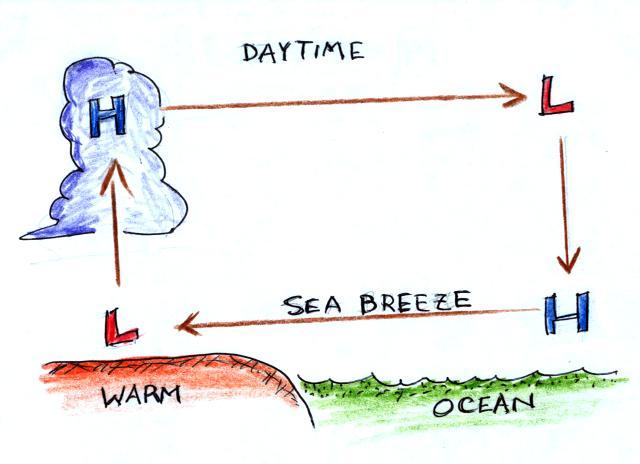 DAYTIME
H
L
L
SEA BREEZE
H
WARM
OCEAN